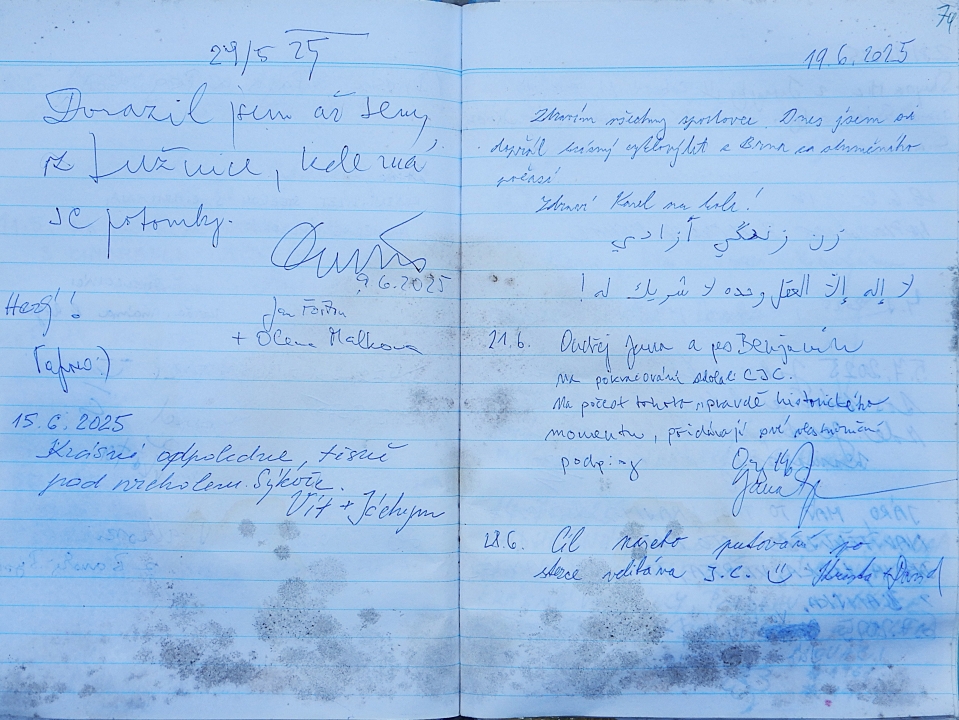 29/5 25
Dorazil jsem až sem,
z Lužnice, kde má
JC potomky.
9.6.2025
Jan Fořt
+ Olena Malkova
Hezý!!
15.6.2025
Krásné odpoledne, těsně
pod vrcholem. Sýkoře.
Vít + Jáchym
74
19.6.2025
Zdravím všechny sportovce. Dnes jsem si
dopřál krásný cyklovýlet z Brna za slunečného
počasí
Zdraví Karel na kole!
زن زندگي آزادي
لا إله إلا العقل وحده لا شريك له!
21.6. Ondřej Jana a pes Benjamín
na pokračování stezce CJC.
Na počest tohoto opravdě historického
momentu, přidávají své vlastnoruční
podpisy
Jana
28.6. Cíl našeho putování po
stezce velikána J.C. David